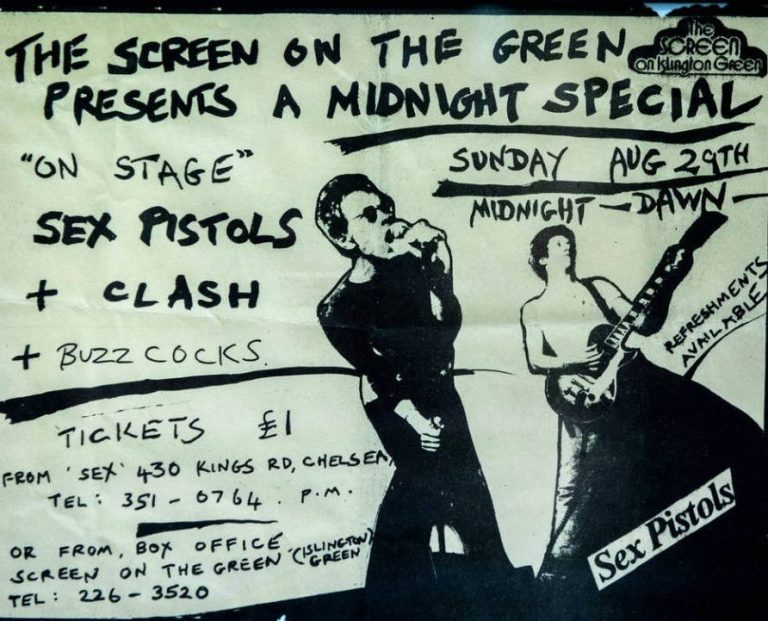 THE SCREEN ON THE GREEN
The
SCREEN
on Islington Green
PRESENTS A MIDNIGHT SPECIAL
"ON STAGE"
SUNDAY AUG 29TH
MIDNIGHT - DAWN -
SEX PISTOLS
+ CLASH
+ BUZZCOCKS.
REFRESHMENTS
AVAILABLE
TICKETS £1
FROM 'SEX' 430 KINGS RD, CHELSEA,
TEL: 351 - 0764 . P.M.
OR FROM, BOX OFFICE
SCREEN ON THE GREEN (ISLINGTON
GREEN)
TEL: 226 - 3520
Sex Pistols